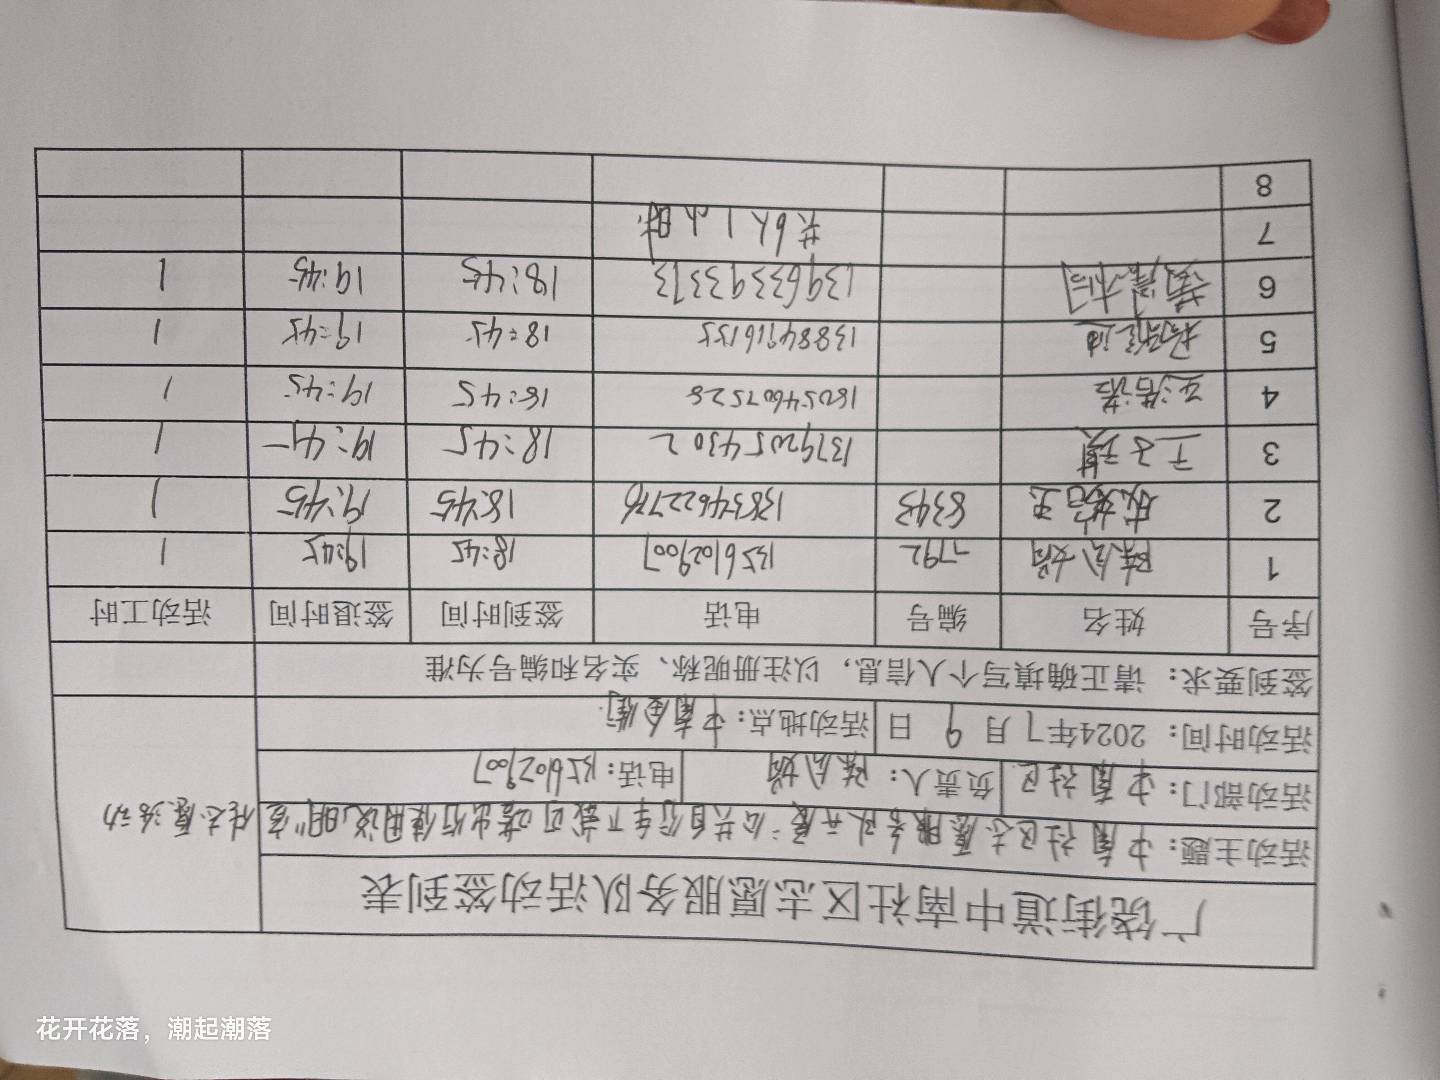 广饶街道中南社区志愿服务队活动签到表
活动主题：中南社区志愿服务队开展"公共自行车下载叮嗒出行使用说明"宣传志愿活动
活动部门：中南社区 负责人： 电话：13561029007
活动时间：2024年7月9日 活动地点：中南金街
签到要求：请正确填写个人信息，以注册昵称、实名和编号为准
序号 姓名 编号 电话 签到时间 签退时间 活动工时
1 7792 13561029007 18:45 19:45 1
2 8343 18:45 19:45 1
3 13792054302 18:45 19:45 1
4 王浩诺 18054607528 18:45 19:45 1
5 13884916155 18:45 19:45 1
6 13963393373 18:45 19:45 1
7 共6人1小时.
8
花开花落，潮起潮落